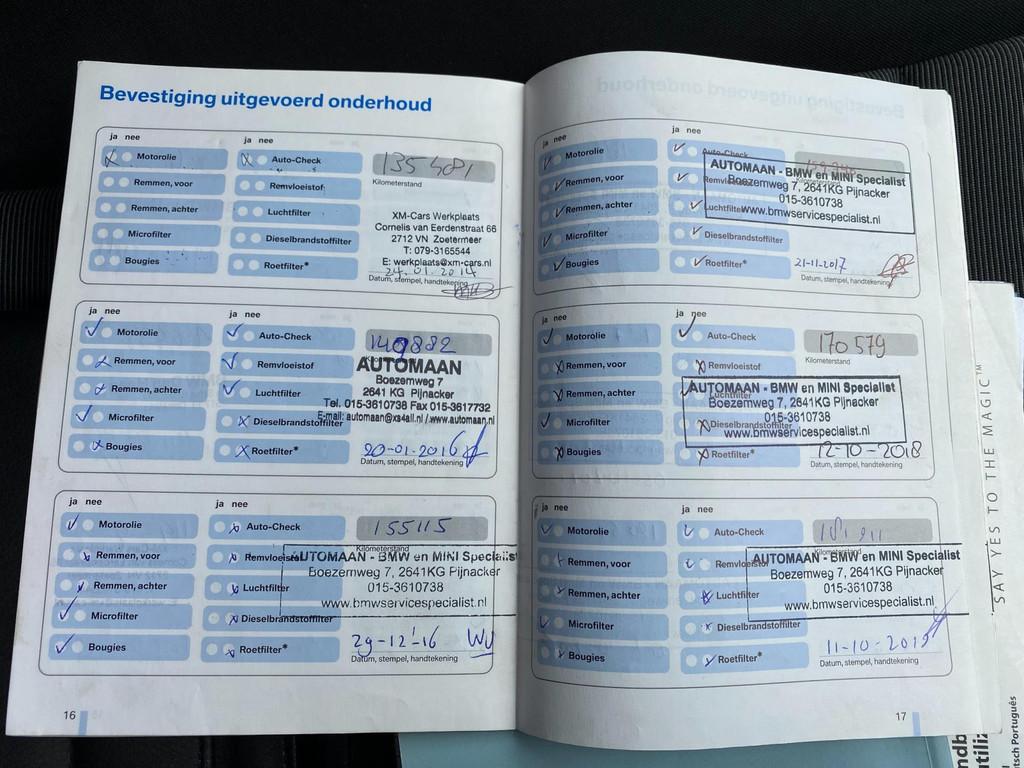 Bevestiging uitgevoerd onderhoud
ja nee
ja nee
Motorolie
Auto-Check
135 481
Kilometerstand
Remmen, voor
Remvloeistof
Remmen, achter
Luchtfilter
Microfilter
Dieselbrandstoffilter
Bougies
Roetfilter*
XM-Cars Werkplaats
Cornelis van Eerdenstraat 66
2712 VN Zoetermeer
T: 079-3165544
E: werkplaats@xm-cars.nl
24.01.2014
Datum, stempel, handtekening
ja nee
ja nee
Motorolie
Auto-Check
149882
Remmen, voor
Remvloeistof
Remmen, achter
Luchtfilter
Microfilter
Dieselbrandstoffilter
Bougies
Roetfilter*
AUTOMAAN
Boezemweg 7
2641 KG Pijnacker
Tel. 015-3610738 Fax 015-3617732
E-mail: automaan@xs4all.nl / www.automaan.nl
20-01-2016
Datum, stempel, handtekening
ja nee
ja nee
Motorolie
Auto-Check
155115
Kilometerstand
Remmen, voor
Remvloeistof
Remmen, achter
Luchtfilter
Microfilter
Dieselbrandstoffilter
Bougies
Roetfilter*
AUTOMAAN - BMW en MINI Specialist
Boezemweg 7, 2641KG Pijnacker
015-3610738
www.bmwservicespecialist.nl
29-12-16
Datum, stempel, handtekening
16
ja nee
ja nee
Motorolie
Auto-Check
Remmen, voor
Remvloeistof
Remmen, achter
Luchtfilter
Microfilter
Dieselbrandstoffilter
Bougies
Roetfilter*
AUTOMAAN - BMW en MINI Specialist
Boezemweg 7, 2641KG Pijnacker
015-3610738
www.bmwservicespecialist.nl
21-11-2017
Datum, stempel, handtekening
ja nee
ja nee
Motorolie
Auto-Check
170 579
Kilometerstand
Remmen, voor
Remvloeistof
Remmen, achter
Luchtfilter
Microfilter
Dieselbrandstoffilter
Bougies
Roetfilter*
AUTOMAAN - BMW en MINI Specialist
Boezemweg 7, 2641KG Pijnacker
015-3610738
www.bmwservicespecialist.nl
12-10-2018
Datum, stempel, handtekening
ja nee
ja nee
Motorolie
Auto-Check
Kilometerstand
Remmen, voor
Remvloeistof
Remmen, achter
Luchtfilter
Microfilter
Dieselbrandstoffilter
Bougies
Roetfilter*
AUTOMAAN - BMW en MINI Specialist
Boezemweg 7, 2641KG Pijnacker
015-3610738
www.bmwservicespecialist.nl
Datum, stempel, handtekening
17
SAY YES TO THE MAGIC™
tsch Português